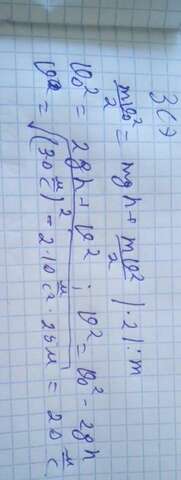 3(7)
mϑ₀²/2 = mgh + mϑ²/2 | · 2 | : m
ϑ₀² = 2gh + ϑ² ; ϑ² = ϑ₀² - 2gh
ϑ = √((30 м/с)² - 2·10 м/с² · 25м) = 20 м/с